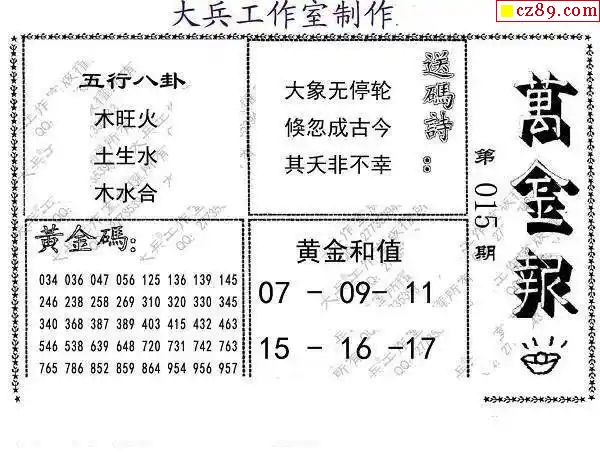 大兵工作室制作
cz89.com
萬金報
第015期
送碼詩：
大象无停轮
倏忽成古今
其夭非不幸
五行八卦
木旺火
土生水
木水合
黃金碼：
034 036 047 056 125 136 139 145
246 238 258 269 310 320 330 345
340 368 387 389 403 415 432 463
546 538 639 648 720 731 742 763
765 786 852 859 864 954 956 957
黄金和值
07 - 09- 11
15 - 16 -17